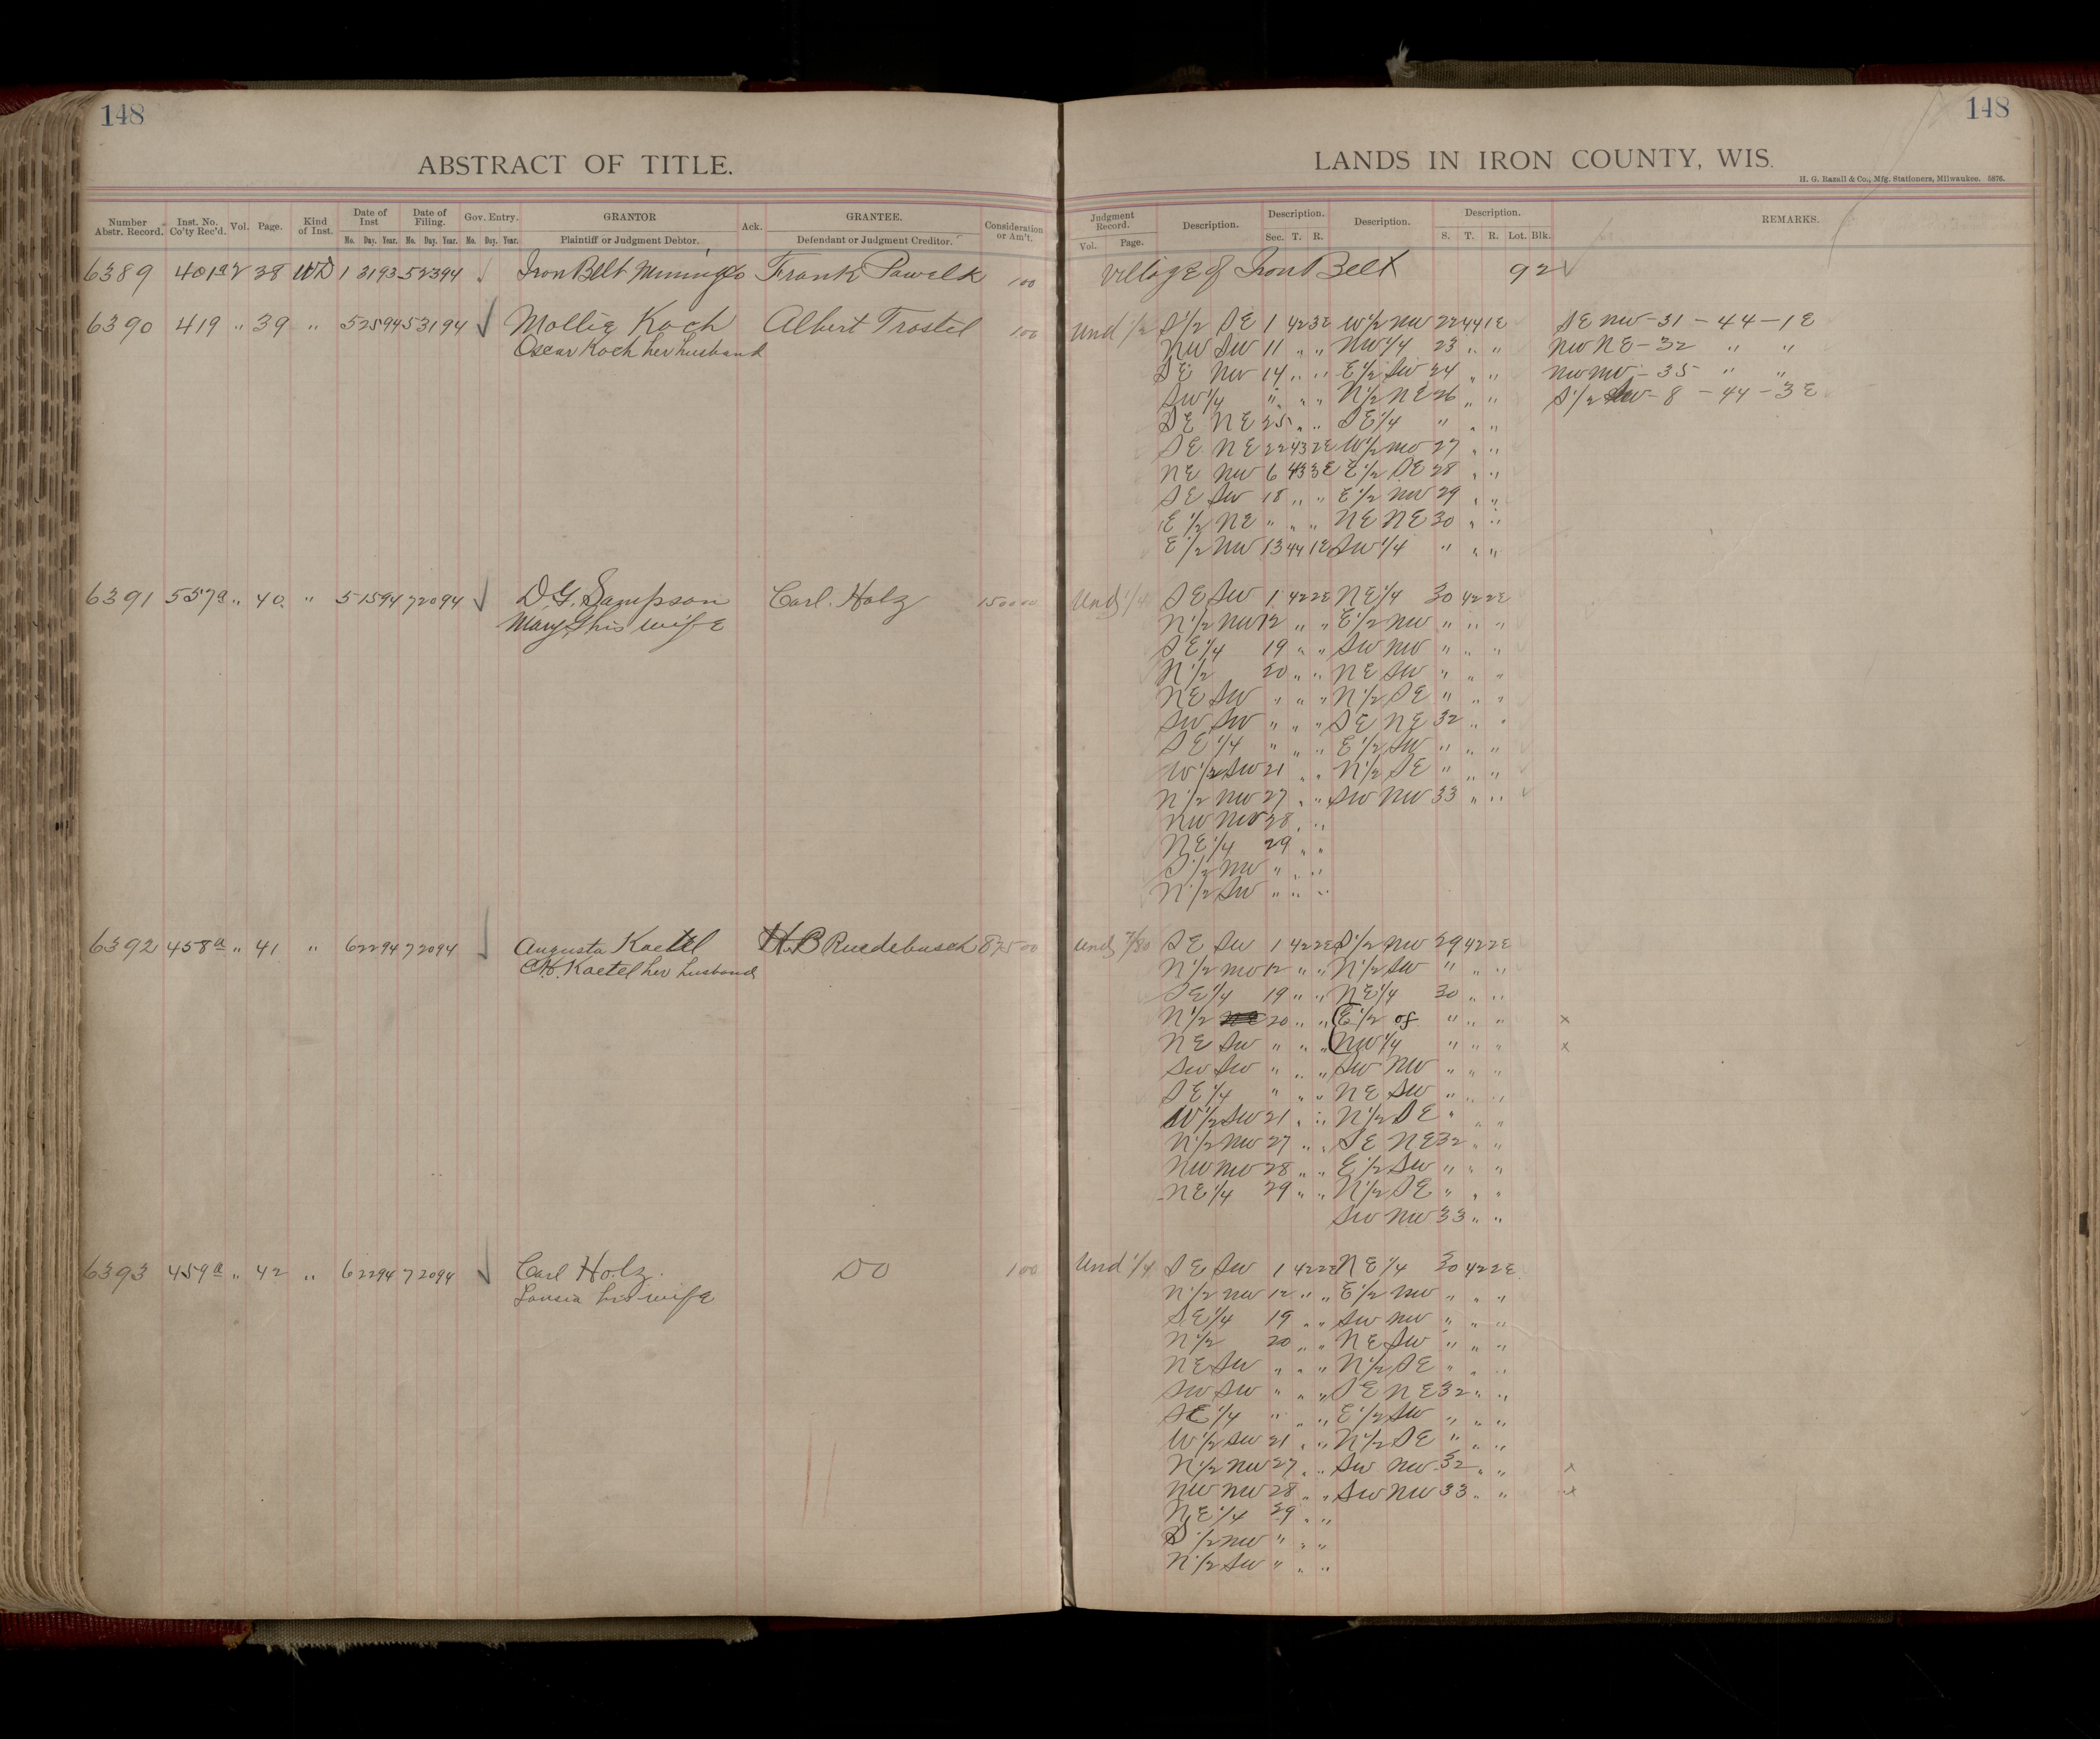 148
148
ABSTRACT OF TITLE.
LANDS IN IRON COUNTY, WIS.
H. G. Razall & Co., Mfg. Stationers, Milwaukee. 5876.
Number Abstr. Record. Inst. No. Co'ty Rec'd. Vol. Page. Kind of Inst. Date of Inst Mo. Day. Year. Date of Filing. Mo. Day. Year. Gov. Entry. Mo. Day. Year. GRANTOR Plaintiff or Judgment Debtor. Ack. GRANTEE. Defendant or Judgment Creditor. Consideration or Am't.
Judgment Record. Vol. Page. Description. Description. Sec. T. R. Description. Description. S. T. R. Lot. Blk. REMARKS.
6389 401a 2 38 WD 1 31 93 5 23 94 Iron Belt Mining Co Frank Pawelk 1 00 Village of Iron Belt 92
6390 419 " 39 " 5 25 94 5 31 94 Mollie Koch Albert Trostel 1 00 Und 1/2 S1/2 SE 1 42 3E W1/2 NW 22 44 1E SE NW - 31 - 44 - 1E
Oscar Koch her husband NW SW 11 " " NW1/4 23 " " NW NE - 32 " "
SE NW 14 " " E1/2 SW 24 " " NW NW - 35 " "
SW1/4 " " " N1/2 NE 26 " " S1/2 SW - 8 - 44 - 3E
SE NE 25 " " SE1/4 " " "
SE NE 22 43 2E W1/2 NW 27 " "
NE NW 6 43 3E E1/2 SE 28 " "
SE SW 18 " " E1/2 NW 29 " "
E1/2 NE " " " NE NE 30 " "
E1/2 NW 13 44 1E SW1/4 " " "
6391 557a " 40 " 5 15 94 7 20 94 D. G. Sampson Carl Holz 1500 00 Und 1/4 SE SW 1 42 2E NE1/4 30 42 2E
Mary S his wife N1/2 NW 12 " " E1/2 NW " " "
SE1/4 19 " " SW NW " " "
N1/2 20 " " NE SW " " "
NE SW " " " N1/2 SE " " "
SW SW " " " SE NE 32 " "
SE1/4 " " " E1/2 SW " " "
W1/2 SW 21 " " N1/2 SE " " "
N1/2 NW 27 " " SW NW 33 " "
NW NW 28 " "
NE1/4 29 " "
S1/2 NW " " "
N1/2 SW " " "
6392 458a " 41 " 6 22 94 7 20 94 Augusta Kaetel H. B Ruedebusch 875 00 Und 7/80 SE SW 1 42 2E S1/2 NW 29 42 2E
C. H. Kaetel her husband N1/2 NW 12 " " N1/2 SW " " "
SE1/4 19 " " NE1/4 30 " "
N1/2 20 " " (E1/2 of " " " x
NE SW " " " (NW1/4 " " " x
SW SW " " " SW NW " " "
SE1/4 " " " NE SW " " "
W1/2 SW 21 " " N1/2 SE " " "
N1/2 NW 27 " " SE NE 32 " "
NW NW 28 " " E1/2 SW " " "
NE1/4 29 " " N1/2 SE " " "
SW NW 33 " "
6393 459a " 42 " 6 22 94 7 20 94 Carl Holz DO 1 00 Und 1/4 SE SW 1 42 2E NE1/4 30 42 2E
his wife N1/2 NW 12 " " E1/2 NW " " "
SE1/4 19 " " SW NW " " "
N1/2 20 " " NE SW " " "
NE SW " " " N1/2 SE " " "
SW SW " " " SE NE 32 " "
SE1/4 " " " E1/2 SW " " "
W1/2 SW 21 " " N1/2 SE " " "
N1/2 NW 27 " " SW NW 32 " " x
NW NW 28 " " SW NW 33 " " x
NE1/4 29 " "
S1/2 NW " " "
N1/2 SW " " "